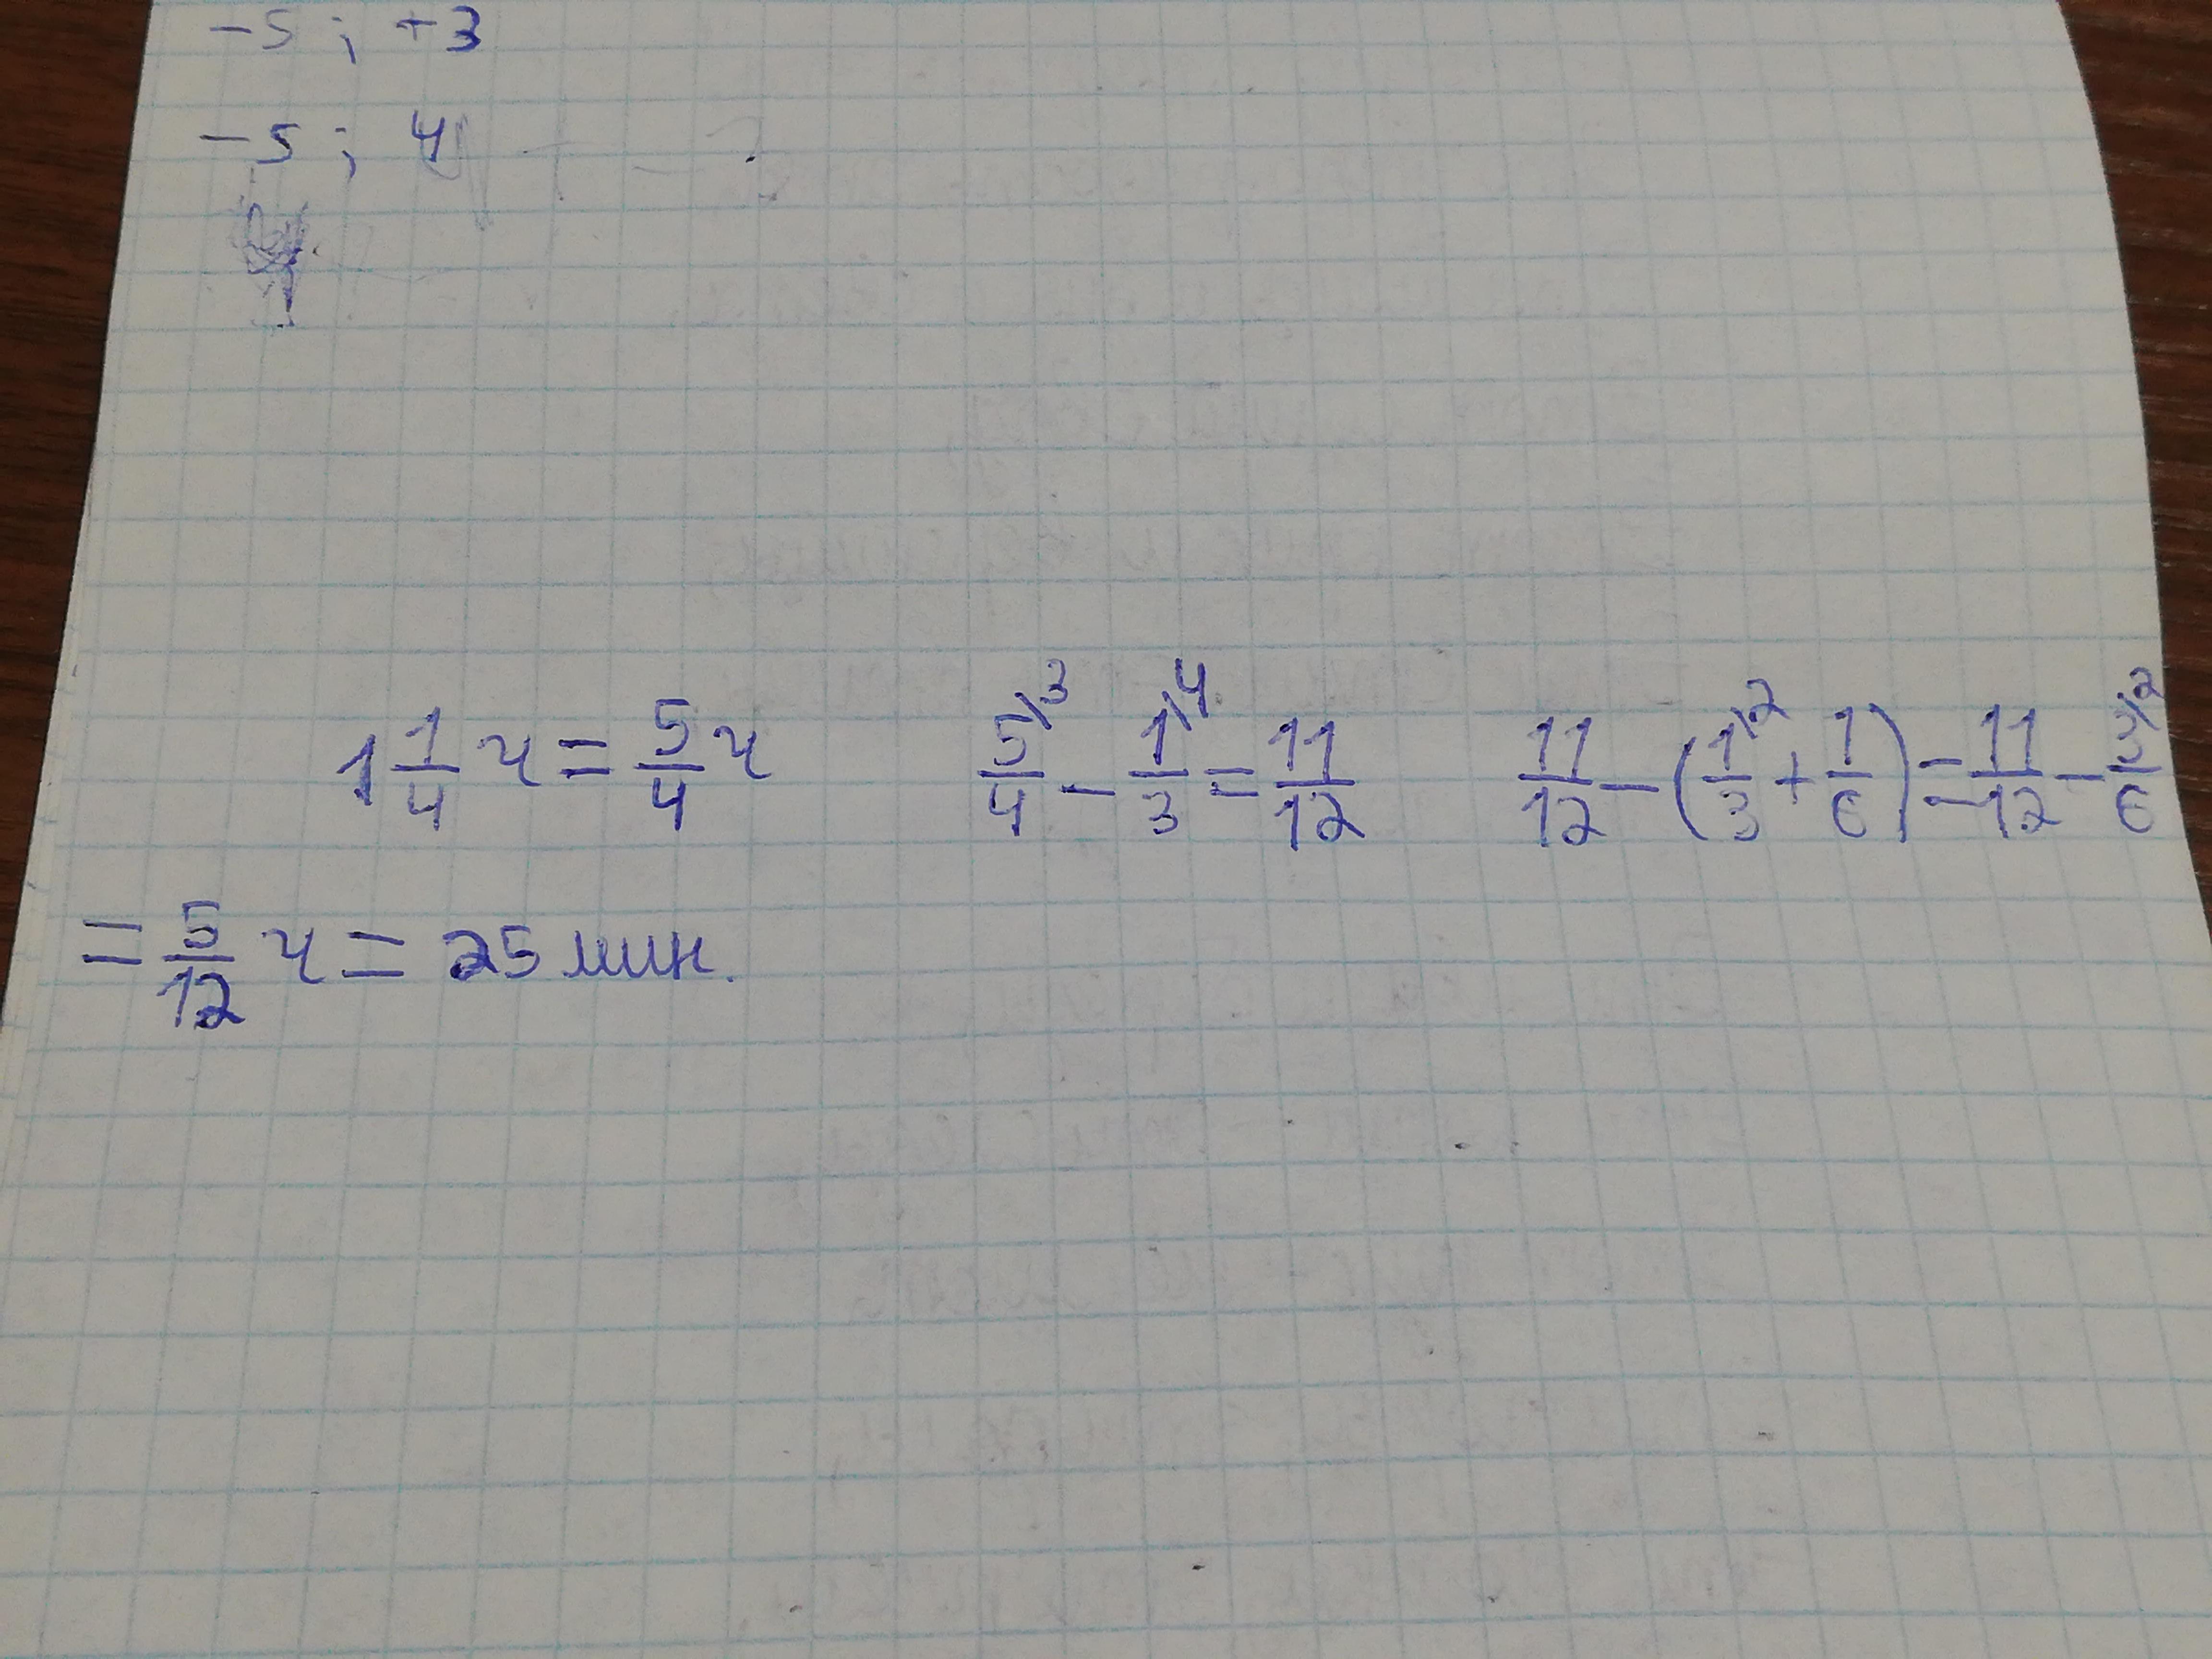 -5 ; +3
-5 ; 4
1 1/4 ч = 5/4 ч 5/4 \3 - 1/3 \4 = 11/12 11/12 - (1/3 \2 + 1/6) = 11/12 - 3/6 \2
= 5/12 ч = 25 мин.